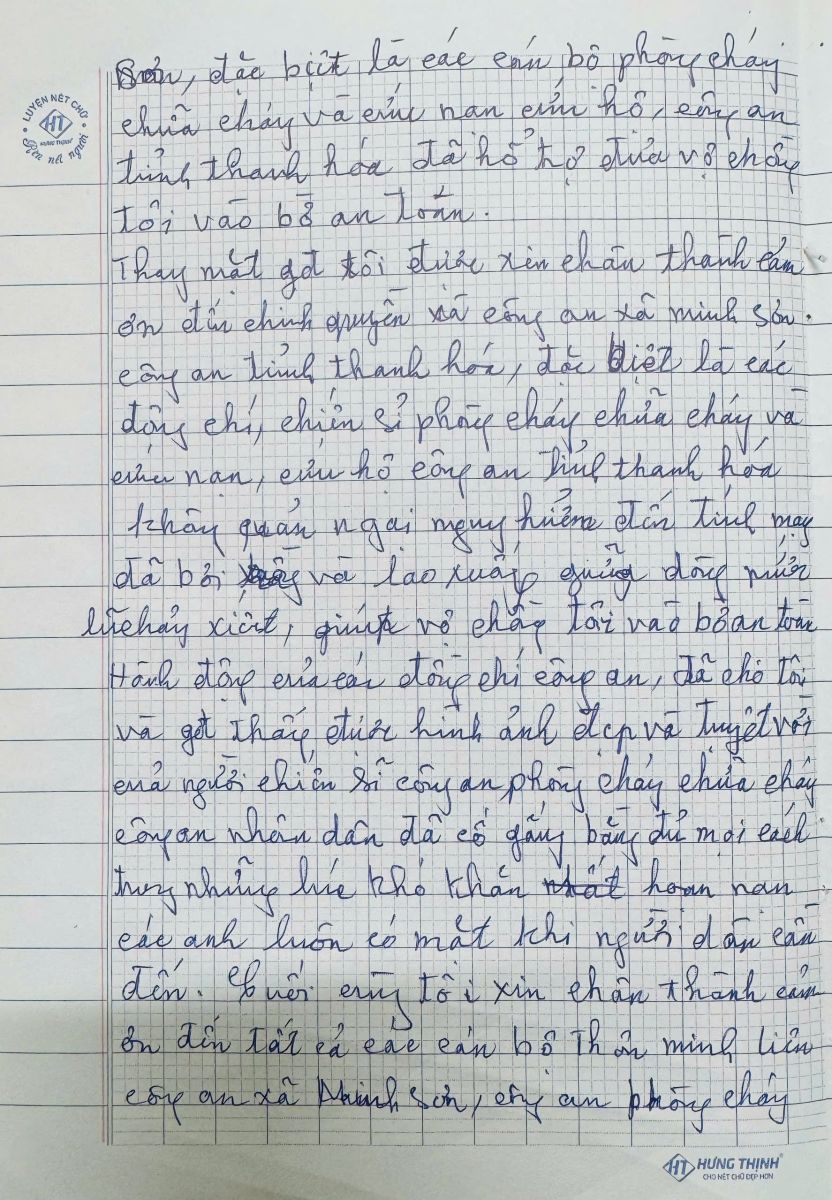 LUYỆN NÉT CHỮ
HT
HƯNG THỊNH
Rèn nết người
Sơn, đặc biệt là các cán bộ phòng cháy
chữa cháy và cứu nạn cứu hộ, công an
tỉnh thanh hóa đã hổ trợ đưa vợ chồng
tôi vào bờ an toàn.
Thay mặt gđ tôi được xin chân thành cảm
ơn đến chính quyền và công an xã minh sơn.
công an tỉnh thanh hóa, đặc biệt là các
đồng chí, chiến sỉ phòng cháy chữa cháy và
cứu nạn, cứu hộ công an tỉnh thanh hóa
không quản ngại nguy hiểm đến tính mạng
đã bơi và lao xuống giữa dòng nước
lũ chảy xiết, giúp vợ chồng tôi vào bờ an toàn
Hành động của các đồng chí công an, đã cho tôi
và gđ thấy được hình ảnh đẹp và tuyệt vời
của người chiến sĩ công an phòng cháy chữa cháy
công an nhân dân đã cố gắng bằng đủ mọi cách
trong những lúc khó khăn hoạn nạn
các anh luôn có mặt khi người dân cần
đến. Cuối cùng tôi xin chân thành cảm
ơn đến tất cả các cán bộ Thôn minh liên
công an xã Minh Sơn, công an phòng cháy
HT HƯNG THỊNH
CHO NÉT CHỮ ĐẸP HƠN